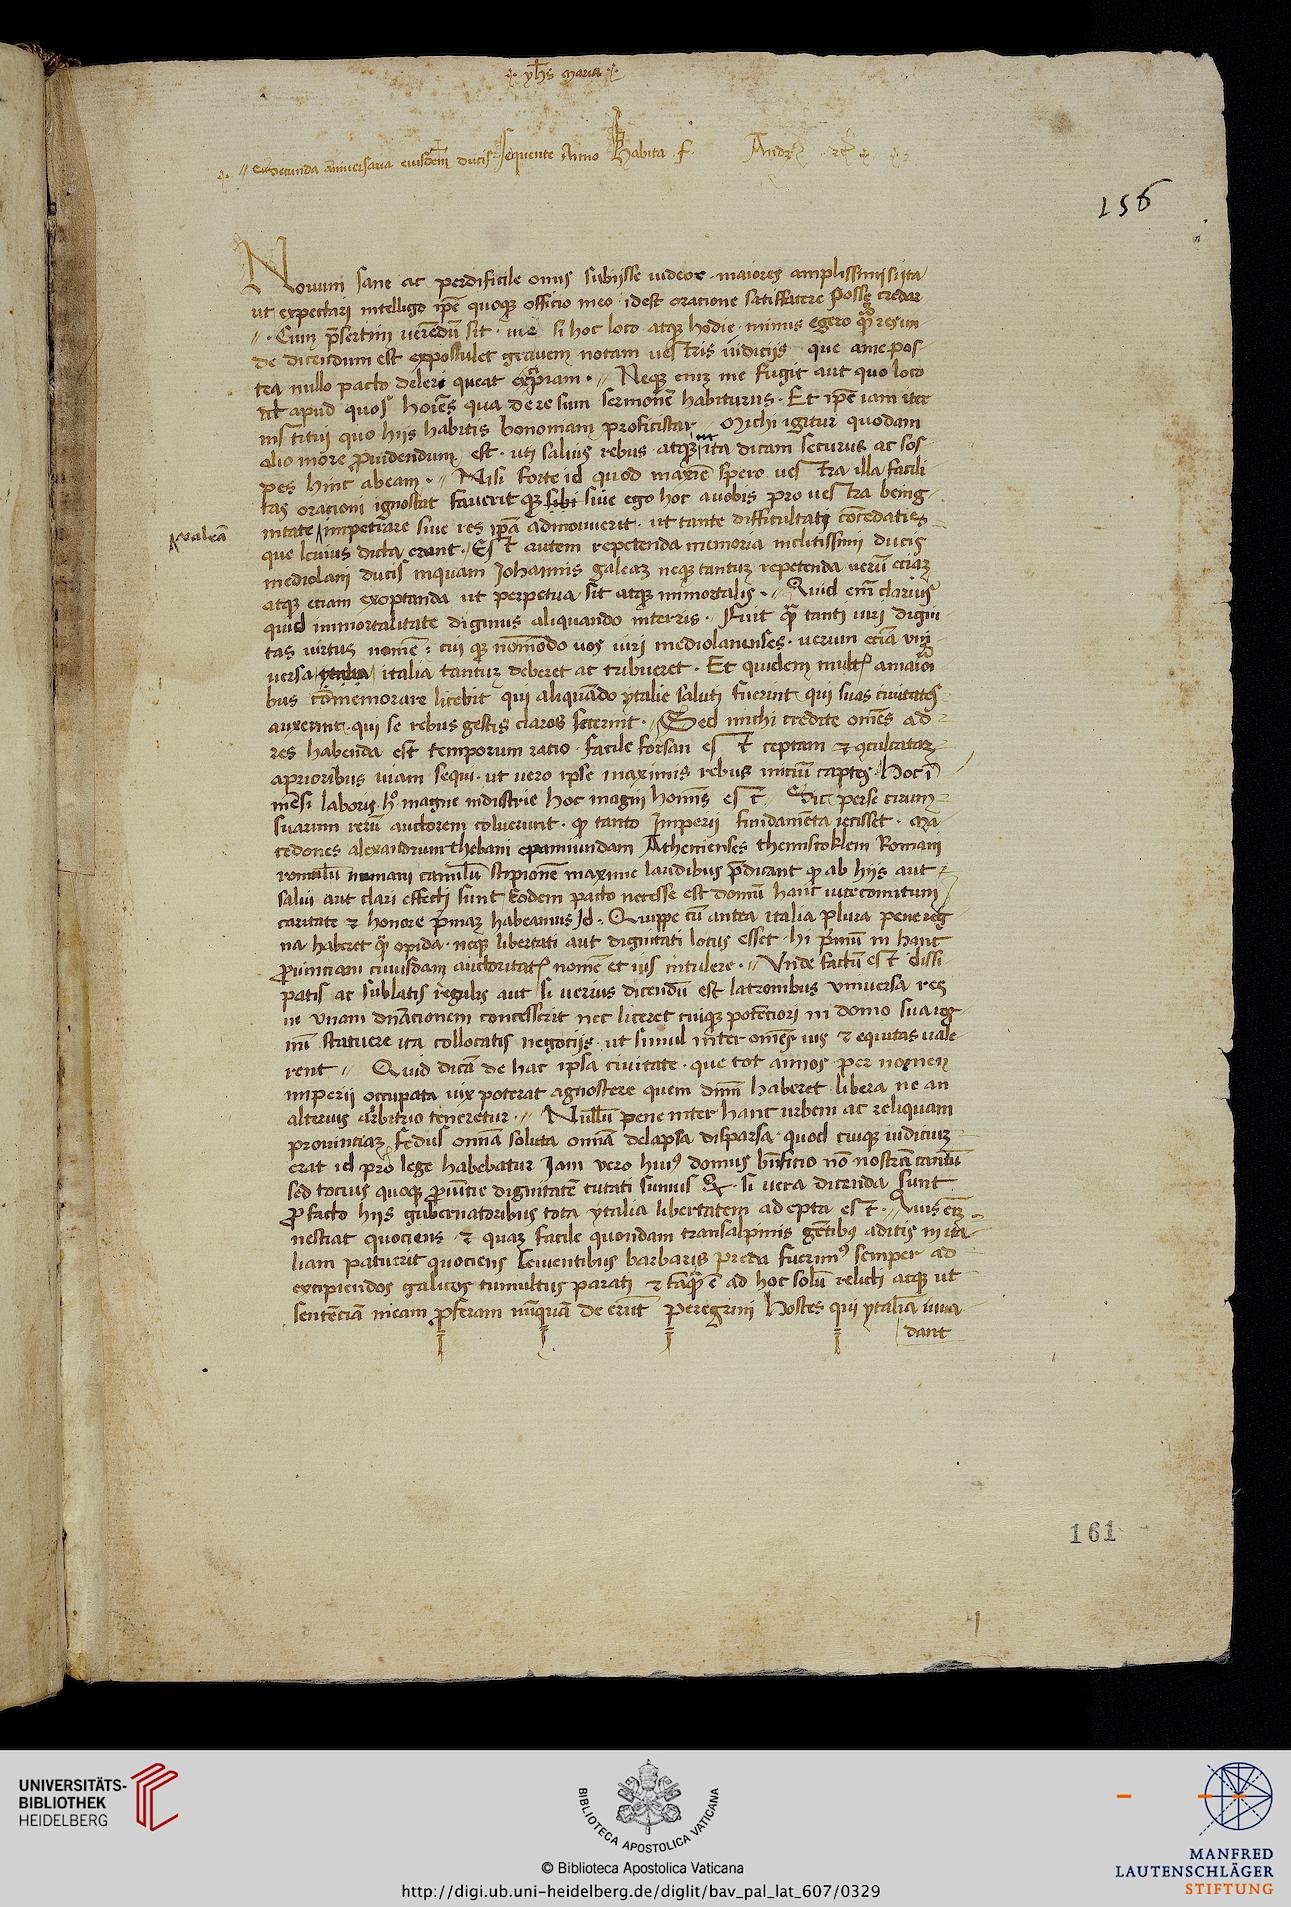 yhs maria
Secunda anniversaria eiusdem ducis Sequente Anno Habita f. Andr
156
Novum sane ac perdificile onus subijsse videor maiores amplissimi si ita
ut expectari intelligo ipē quoqz officio meo idest oracione satisffacere Posse credar
Cum p̄sertim verēdū sit ne si hoc loco atqz hodie minus egero q̄ res un
de dicendum est expostulet gravem notam vestris iudicijs que ame pos
tea nullo pacto deleri queat Neqz eniz me fugit aut quo loco
aut apud quos hoīes qua dere sum sermonē habiturus Et ipē iam iter
institui quo hijs habitis bononiam proficiscar Michi igitur quodam
alio more ꝓvidendum est uti salvis rebus atqz ita dicam securus ac sos
pes hinc abeam Nisi forte id quod maxīe spero vestra illa facili
tas oracioni ignoscat faverit qz sibi sive ego hoc avobis pro vestra benig
valeā
nitate impetrare sive res ip̄a admonuerit ut tante difficultati cōcedatis
que levius dicta erunt Est autem repetenda memoria inclitissimi ducis
mediolani ducis inquam Johannis galeaz neqz tantuz repetenda verū eciaz
atqz eciam exoptanda ut perpetua sit atqz immortalis Quid em̄ clarius
quid immortalitate dignius aliquando interris Fuit q̄ tanti viri digni
tas virtus nomē cui qz nōmodo vos viri mediolanenses verum eciā vni
versa ytalia italia tantuz deberet ac tribueret Et quidem multꝭ amaiori
bus cōmemorare licebit qui aliquādo ytalie saluti fuerint qui suas civitates
auxerint qui se rebus gestis claros fecerint Sed michi credite om̄es ad
res habenda est temporum ratio facile forsan est ceptam et
aprioribus viam sequi ut vero ipse maximis rebus iniciū captes hoc ī
mēsi laboris h̊ magne industrie hoc magni hominis est Sic perse cirum
suarum rerū auctorem coluerunt qꝫ tanto Imperii fundamēta iecisset Ma
cedones alexandrum thebani epaminundam Athenienses themistoklem Romani
romulū numani camilū scipionē maxime laudibus p̄dicant qꝫ ab hijs aut
salvi aut clari effecti sunt Eodem pacto necesse est domū hanc vicecomitum
caritate et honore p̄maz habeamus Id Quippe cū antea italia plura pene reg
na haberet q̄ opida neqz libertati aut dignitati locus esset hi p̄mū in hanc
ꝓvinciam cuiusdam auctoritatꝭ nomē et ius intulere Unde factū est dissi
patis ac sublatis regulis aut si verius dicendū est latronibus universa res
in unam dn̄acionem concesserit nec liceret cuiqz potēciori in domo sua reg
nū statuere ita collocatis negocijs ut simul inter om̄es ius et equitas vale
rent Quid dicā de hac ipsa civitate que tot annos per nomen
imperii occupata vix poterat agnoscere quem dn̄m haberet libera ne an
alterius arbitrio teneretur Nullū pene inter hanc urbem ac reliquam
provinciaz fedus omnia soluta omnia delapsa disparsa quod cuiqz iudiciuz
erat id pro lege habebatur Jam vero huiꝰ domus bn̄ficio nō nostrā tantū
sed tocius quoqz ꝓvīcie dignitatē tutati sumus si vera dicenda sunt
ꝓ facto hijs gubernatoribus tota ytalia libertatem adepta est Quis em̄
nesciat quociens et quaz facile quondam transalpinis gētibꝰ aditis in ita
liam patuerit quociens Leuentibus barbaris preda fuerimꝰ semper ad
excipiendos galicos tumultus parati et tāq̄ ē ad hoc solū relicti atqz ut
sentēciā meam ꝓferam nūquā de erūt peregrini hostes qui ytaliā inva
dant
161
UNIVERSITÄTS-
BIBLIOTHEK
HEIDELBERG
BIBLIOTECA APOSTOLICA VATICANA
© Biblioteca Apostolica Vaticana
http://digi.ub.uni-heidelberg.de/diglit/bav_pal_lat_607/0329
MANFRED
LAUTENSCHLÄGER
STIFTUNG